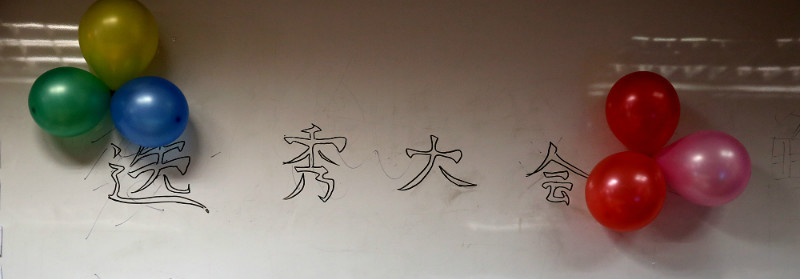 选秀大会